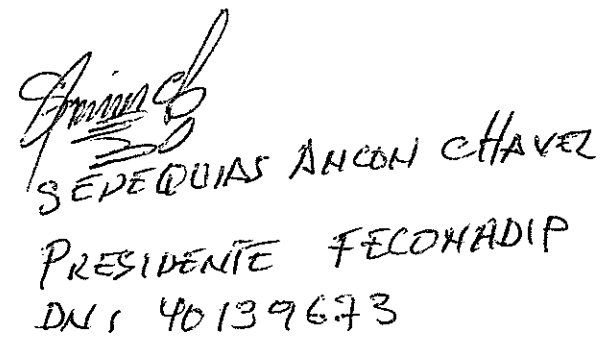 SEDEQUIAS ANCON CHAVEZ
PRESIDENTE FECONADIP
DNI 40139673